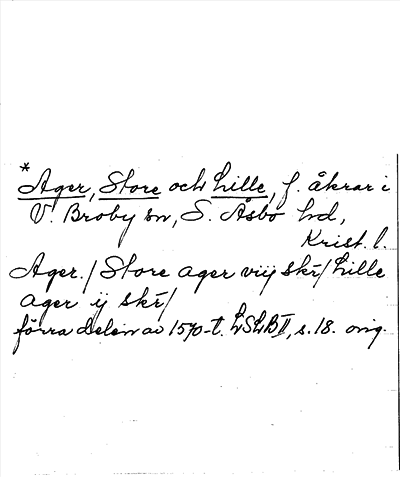 * Ager, Store och Lille, f. åkrar i
V. Broby sn, S. Åsbo hd,
Krist. l.
Ager. / Store ager vıȷ skr̄ / Lille
ager ij skr̄ /
förra delen av 1570-t. LSLB II, s. 18. orig.